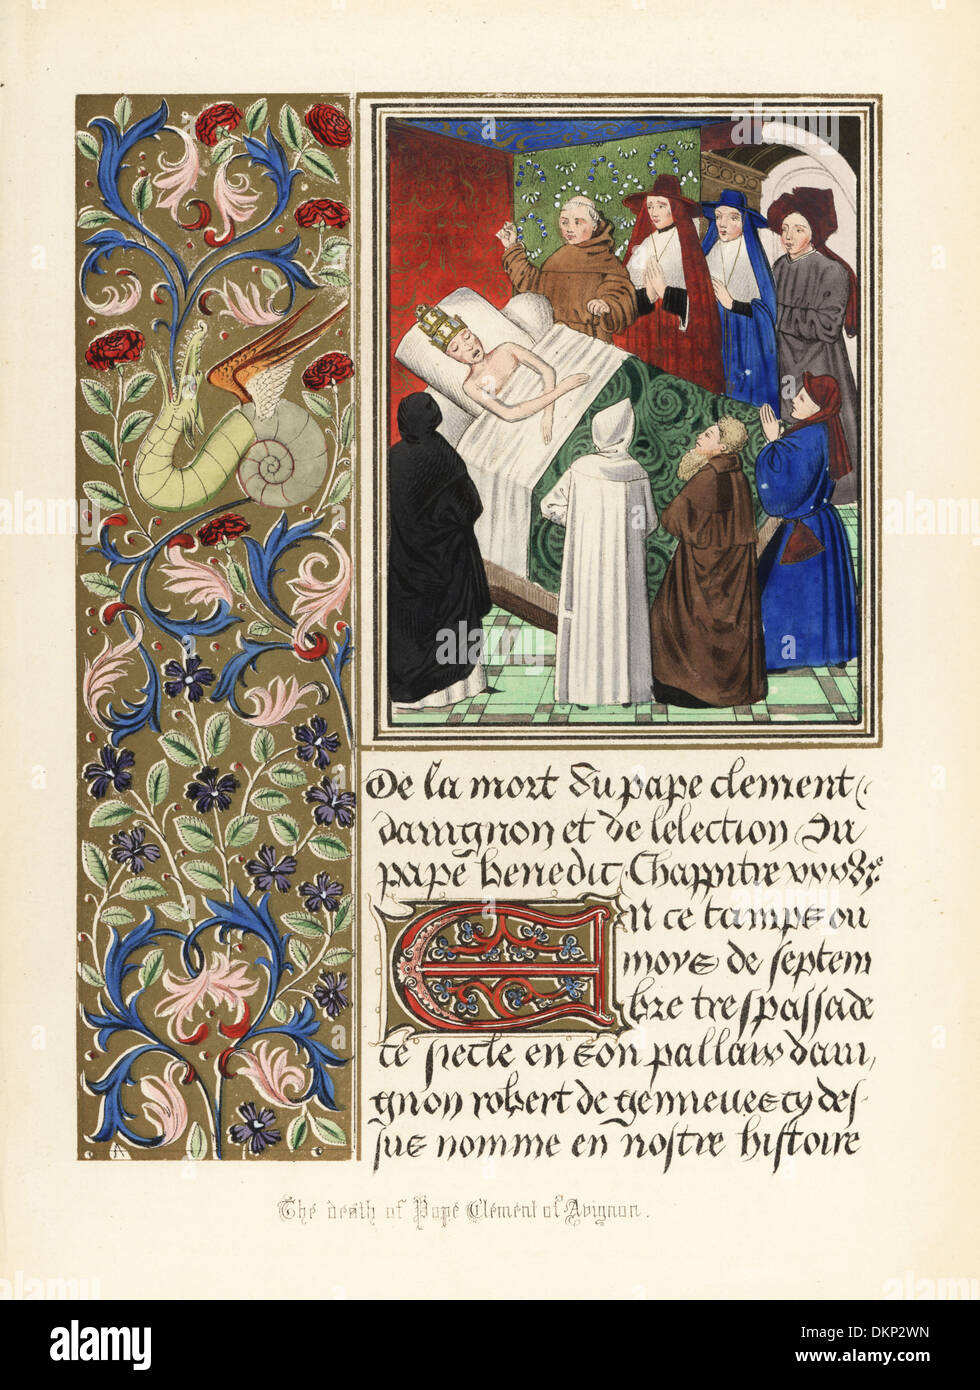 De la mort du pape clement
davignon et de lelection du
pape benedic. Chappitre
En ce tamps ou
moys de septem
bre trespassa de
ce siecle en son pallais davi,
gnon robert de genneues cy des-
sus nomme en nostre histoire
The death of Pope Clement of Avignon.
alamy
Image ID: DKP2WN
www.alamy.com